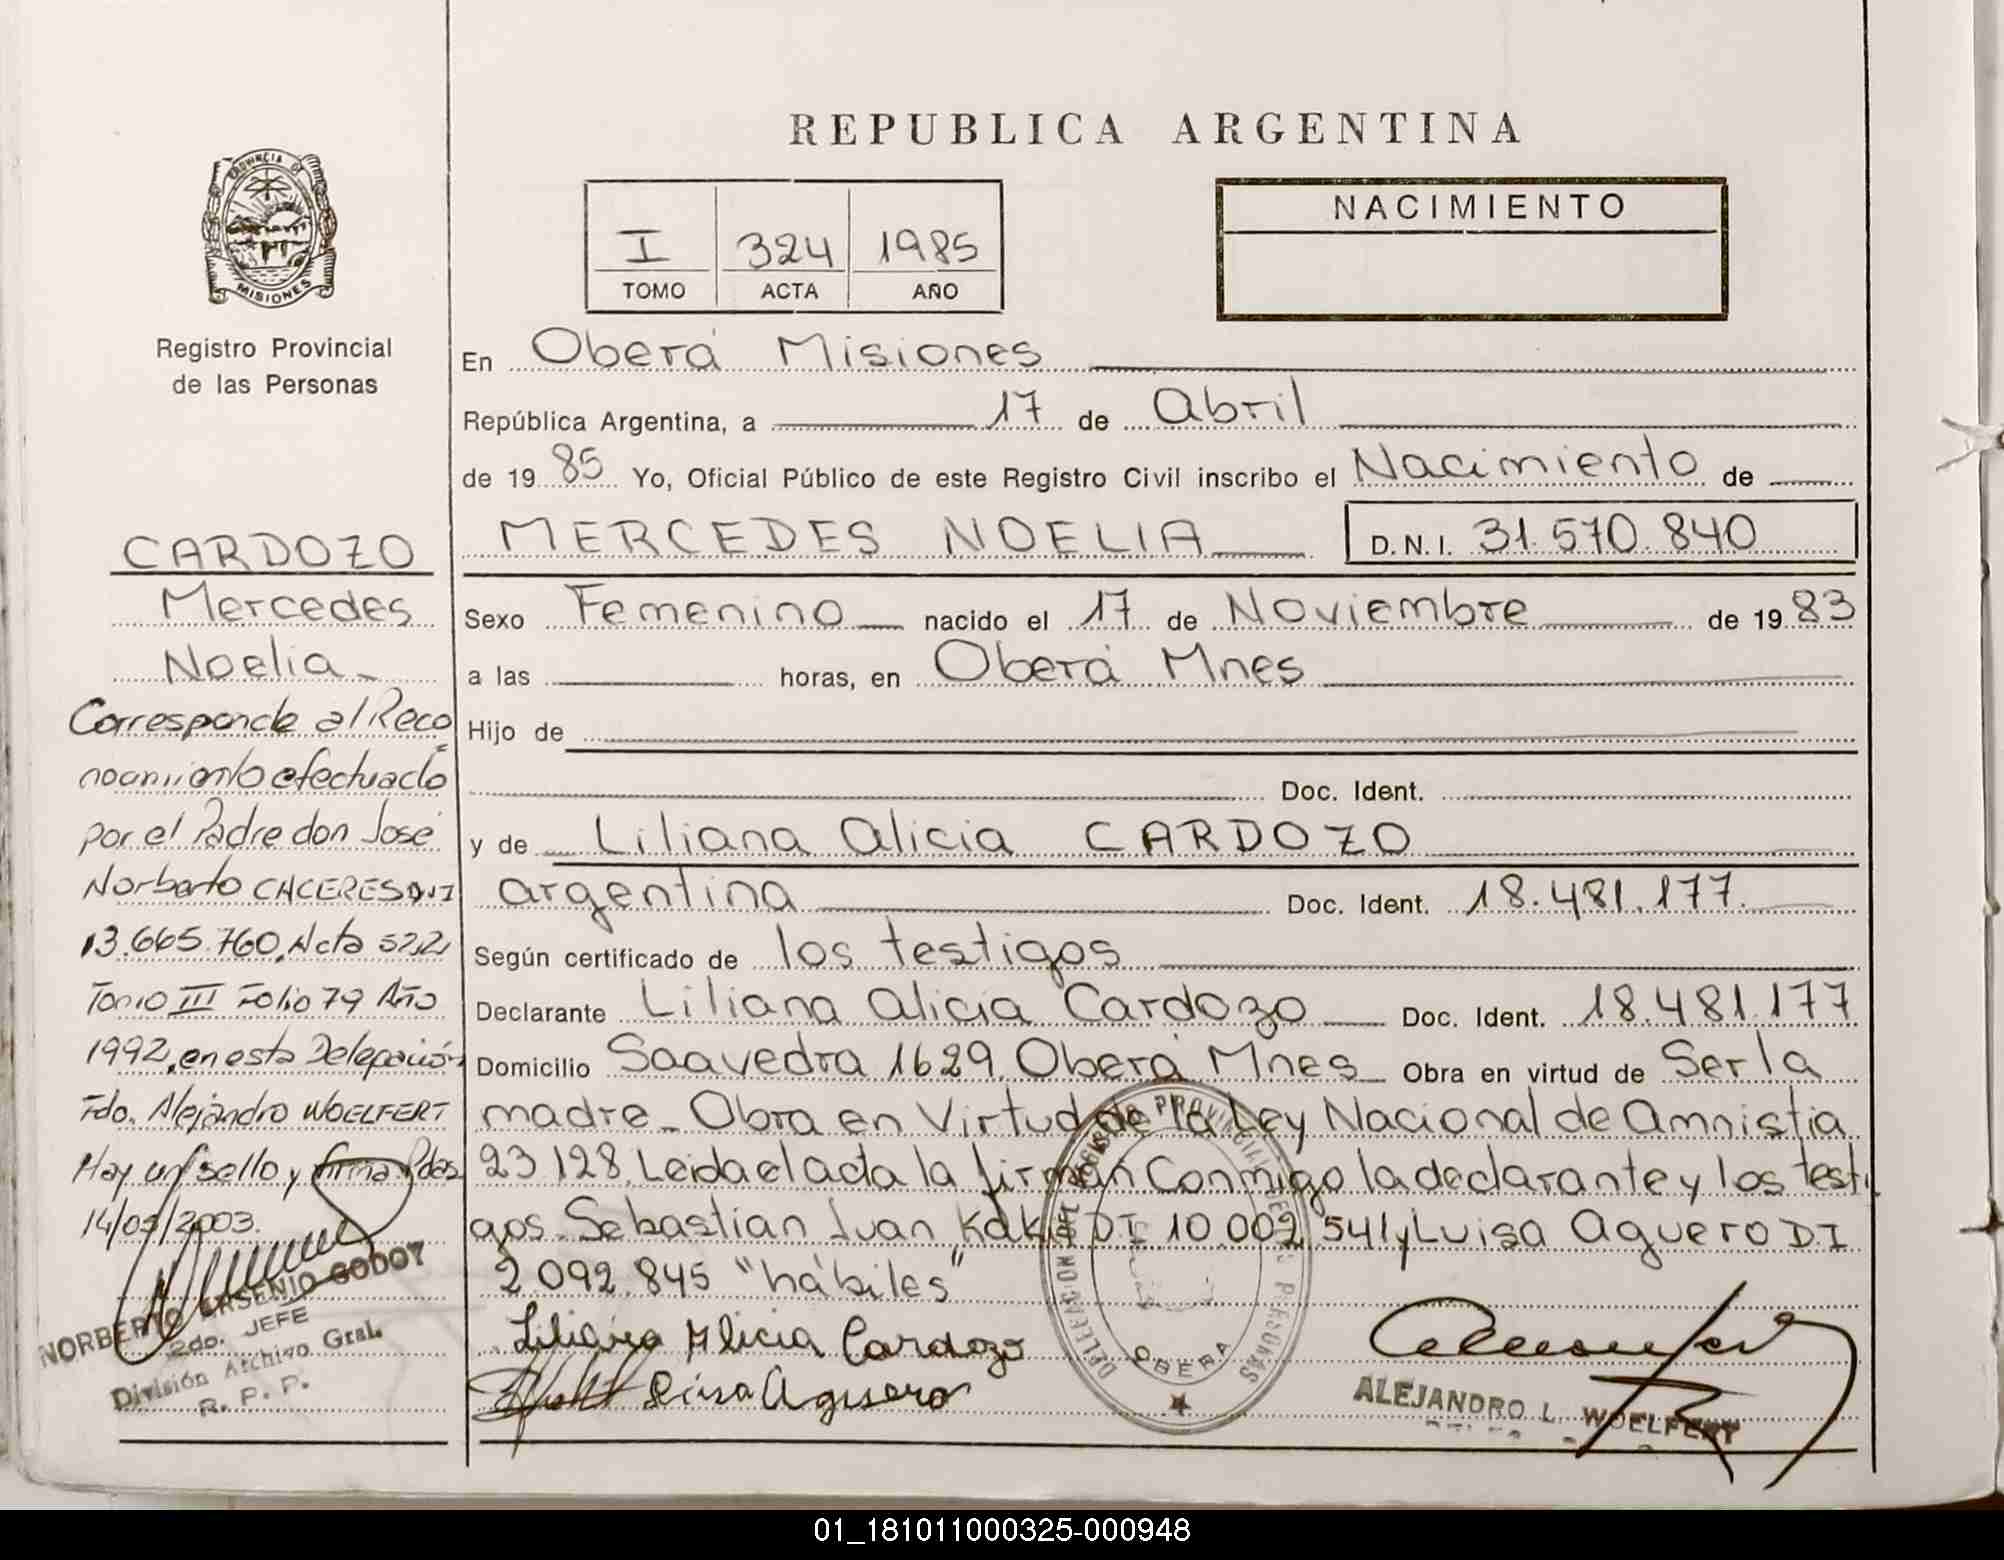 REPUBLICA ARGENTINA
PROVINCIA DE
MISIONES
Registro Provincial
de las Personas
I 324 1985
TOMO ACTA AÑO
NACIMIENTO
En Oberá Misiones
República Argentina, a 17 de Abril
de 1985 Yo, Oficial Público de este Registro Civil inscribo el Nacimiento de
MERCEDES NOELIA D.N.I. 31.570.840
Sexo Femenino nacido el 17 de Noviembre de 1983
a las horas, en Oberá Mnes
Hijo de
Doc. Ident.
y de Liliana Alicia CARDOZO
argentina Doc. Ident. 18.481.177.
Según certificado de los testigos
Declarante Liliana Alicia Cardozo Doc. Ident. 18.481.177
Domicilio Saavedra 1629. Oberá Mnes Obra en virtud de Ser la
madre_ Obra en Virtud de la Ley Nacional de Amnistia
23 128. Leida el acta la firman Conmigo la declarante y los testi
gos. Sebastian Ivan DI 10.002.541 y Luisa Aguero DI
2.092.845 "hábiles"
Liliana Alicia Cardozo
Luisa Aguero
ALEJANDRO L. WOELFERT
DELEGACION DEL REGISTRO PROVINCIAL DE LAS PERSONAS
OBERA
CARDOZO
Mercedes
Noelia_
Corresponde al Reco
nocimiento efectuado
por el Padre don José
Norberto CACERES DNI
13.665.760. Acta 522
Tomo III Folio 79 Año
1992, en esta Delegación
Fdo. Alejandro WOELFERT
Hay un sello y firma Pdas
14/05/2003.
NORBERTO ARSENIO GODOY
2do. JEFE
División Archivo Gral.
R. P. P.
01_181011000325-000948